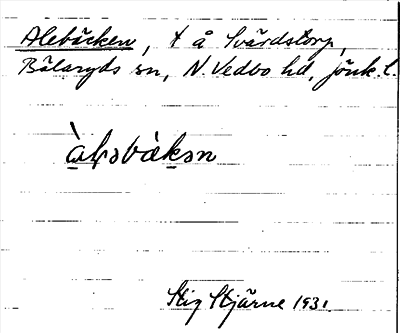 Alebäcken, t å Svärdstorp,
Bälaryds sn, N. Vedbo hd, Jönk. l.
àləbàkən
Stig Stjärne 1931.